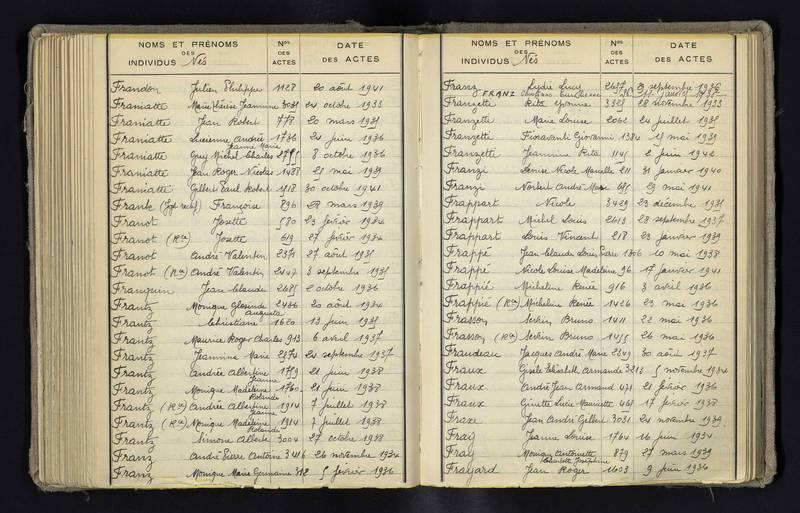 NOMS ET PRÉNOMS DES INDIVIDUS Nés Nos DES ACTES DATE DES ACTES
Frandon Julien Philippe 1128 20 août 1941
Franiatte Marie Hélène Jeannine 3031 24 octobre 1933
Franiatte Jean Robert 778 20 mars 1935
Franiatte Lucienne Andrée 1736 24 juin 1936
Jeanne Marie
Franiatte Guy Michel Charles 2795 8 octobre 1936
Franiatte Jean Roger Nicolas 1428 21 mai 1939
Franiatte Gilbert Paul Robert 1518 30 octobre 1941
Frank Françoise 896 28 mars 1939
Franot Josette 580 23 février 1934
Franot (Rce) Josette 619 27 février 1934
Franot André Valentin 2371 27 août 1935
Franot (Rce) André Valentin 2447 3 septembre 1935
Franquin Jean Claude 2685 2 octobre 1936
Frantz Monique Glosinde 2486 20 août 1934
Augusta
Frantz Christiane 1620 13 juin 1935
Frantz Maurice Roger Charles 913 6 avril 1937
Frantz Jeannine Marie 2574 24 septembre 1937
Frantz Andrée Albertine 1759 21 juin 1938
Jeanne
Frantz Monique Madeleine 1760 21 juin 1938
Rolande
Frantz (Rce) Andrée Albertine 1914 7 juillet 1938
Jeanne
Frantz (Rce) Monique Madeleine 1914 7 juillet 1938
Rolande
Frantz Simone Alberte 3004 27 octobre 1938
Franz André Pierre Antoine 3416 26 novembre 1934
Franz Monique Marie Germaine 5 février 1936
NOMS ET PRÉNOMS DES INDIVIDUS Nés Nos DES ACTES DATE DES ACTES
Franz Lydie Lucy 2637 29 septembre 1936
FRANZ Christiane
Franzette Rita Yvonne 3325 28 novembre 1933
Franzette Marie Louise 2062 24 juillet 1935
Franzetti Fioravanti Giovanni 1384 15 mai 1939
Franzetti Jeannine Rita 1145 2 juin 1942
Franzi Denise Nicole Marcelle 211 31 janvier 1940
Franzi Norbert André Marie 685 29 mai 1941
Frappart Nicole 3429 23 décembre 1935
Frappart Michel Louis 2613 28 septembre 1937
Frappart Louis Vincent 218 23 janvier 1939
Frappé Jean Claude Louis Pierre 1306 10 mai 1938
Frappé Nicole Louise Madeleine 96 17 janvier 1941
Frappié Micheline Renée 916 3 avril 1936
Frappié (Rce) Micheline Renée 1426 23 mai 1936
Frasson Sevrin Bruno 1411 22 mai 1936
Frasson (Rce) Sevrin Bruno 1455 26 mai 1936
Fraudeau Jacques André Marie 2349 30 août 1937
Fraux Gisèle Elisabeth Armande 3213 5 novembre 1934
Fraux André Jean Armand 471 21 février 1936
Fraux Ginette Lucie Mauricette 468 17 février 1938
Fraxe Jean André Gilbert 3031 24 novembre 1939
Fray Jeanne Louise 1764 16 juin 1934
Fray Monique Antoinette 879 27 mars 1939
Charlotte Joséphine
Frayard Jean Roger 1603 9 juin 1936